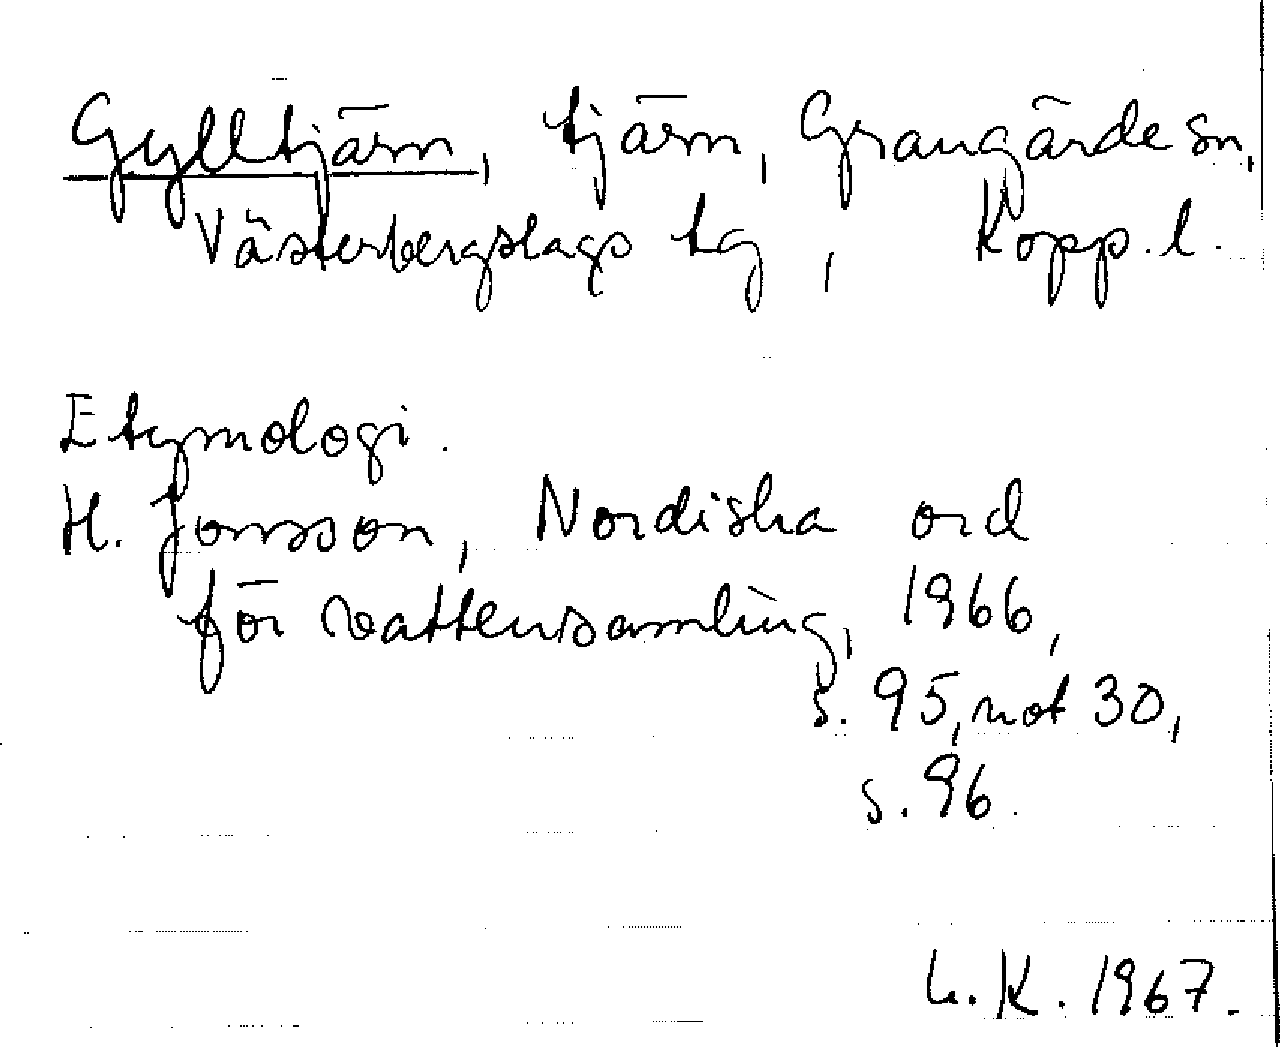 Gylltjärn, tjärn, Grangärde sn,
Västerbergslags tg, Kopp. l.
Etymologi.
H. Jonsson, Nordiska ord
för vattensamling, 1966,
s. 95, not 30,
s. 96.
L. K. 1967.